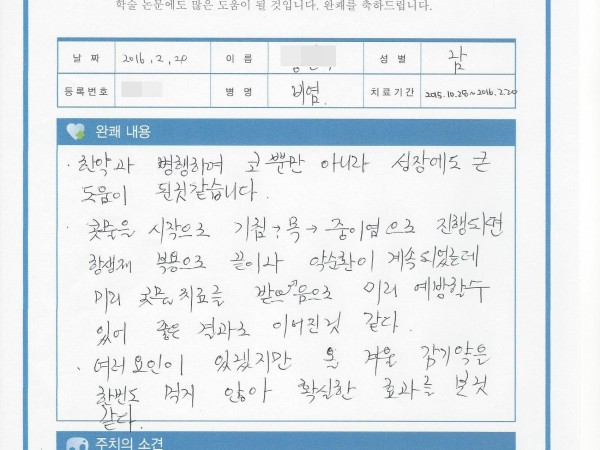 학술 논문에도 많은 도움이 될 것입니다. 완쾌를 축하드립니다.
날 짜 2016. 2. 20 이 름 성 별 남
등록번호 병 명 비염. 치료기간 2015.10.28~2016.2.20
완쾌 내용
· 한약과 병행하며 코 뿐만 아니라 성장에도 큰
도움이 된것같습니다.
· 콧물을 시작으로 기침→목→중이염으로 진행되면
항생제 복용으로 끝이나 악순환이 계속되었는데
미리 콧물치료를 받았음으로 미리 예방할수
있어 좋은 결과로 이어진것 같다.
· 여러요인이 있겠지만 올 겨울 감기약을
한번도 먹지 않아 확실한 효과를 본것
같다.
주치의 소견